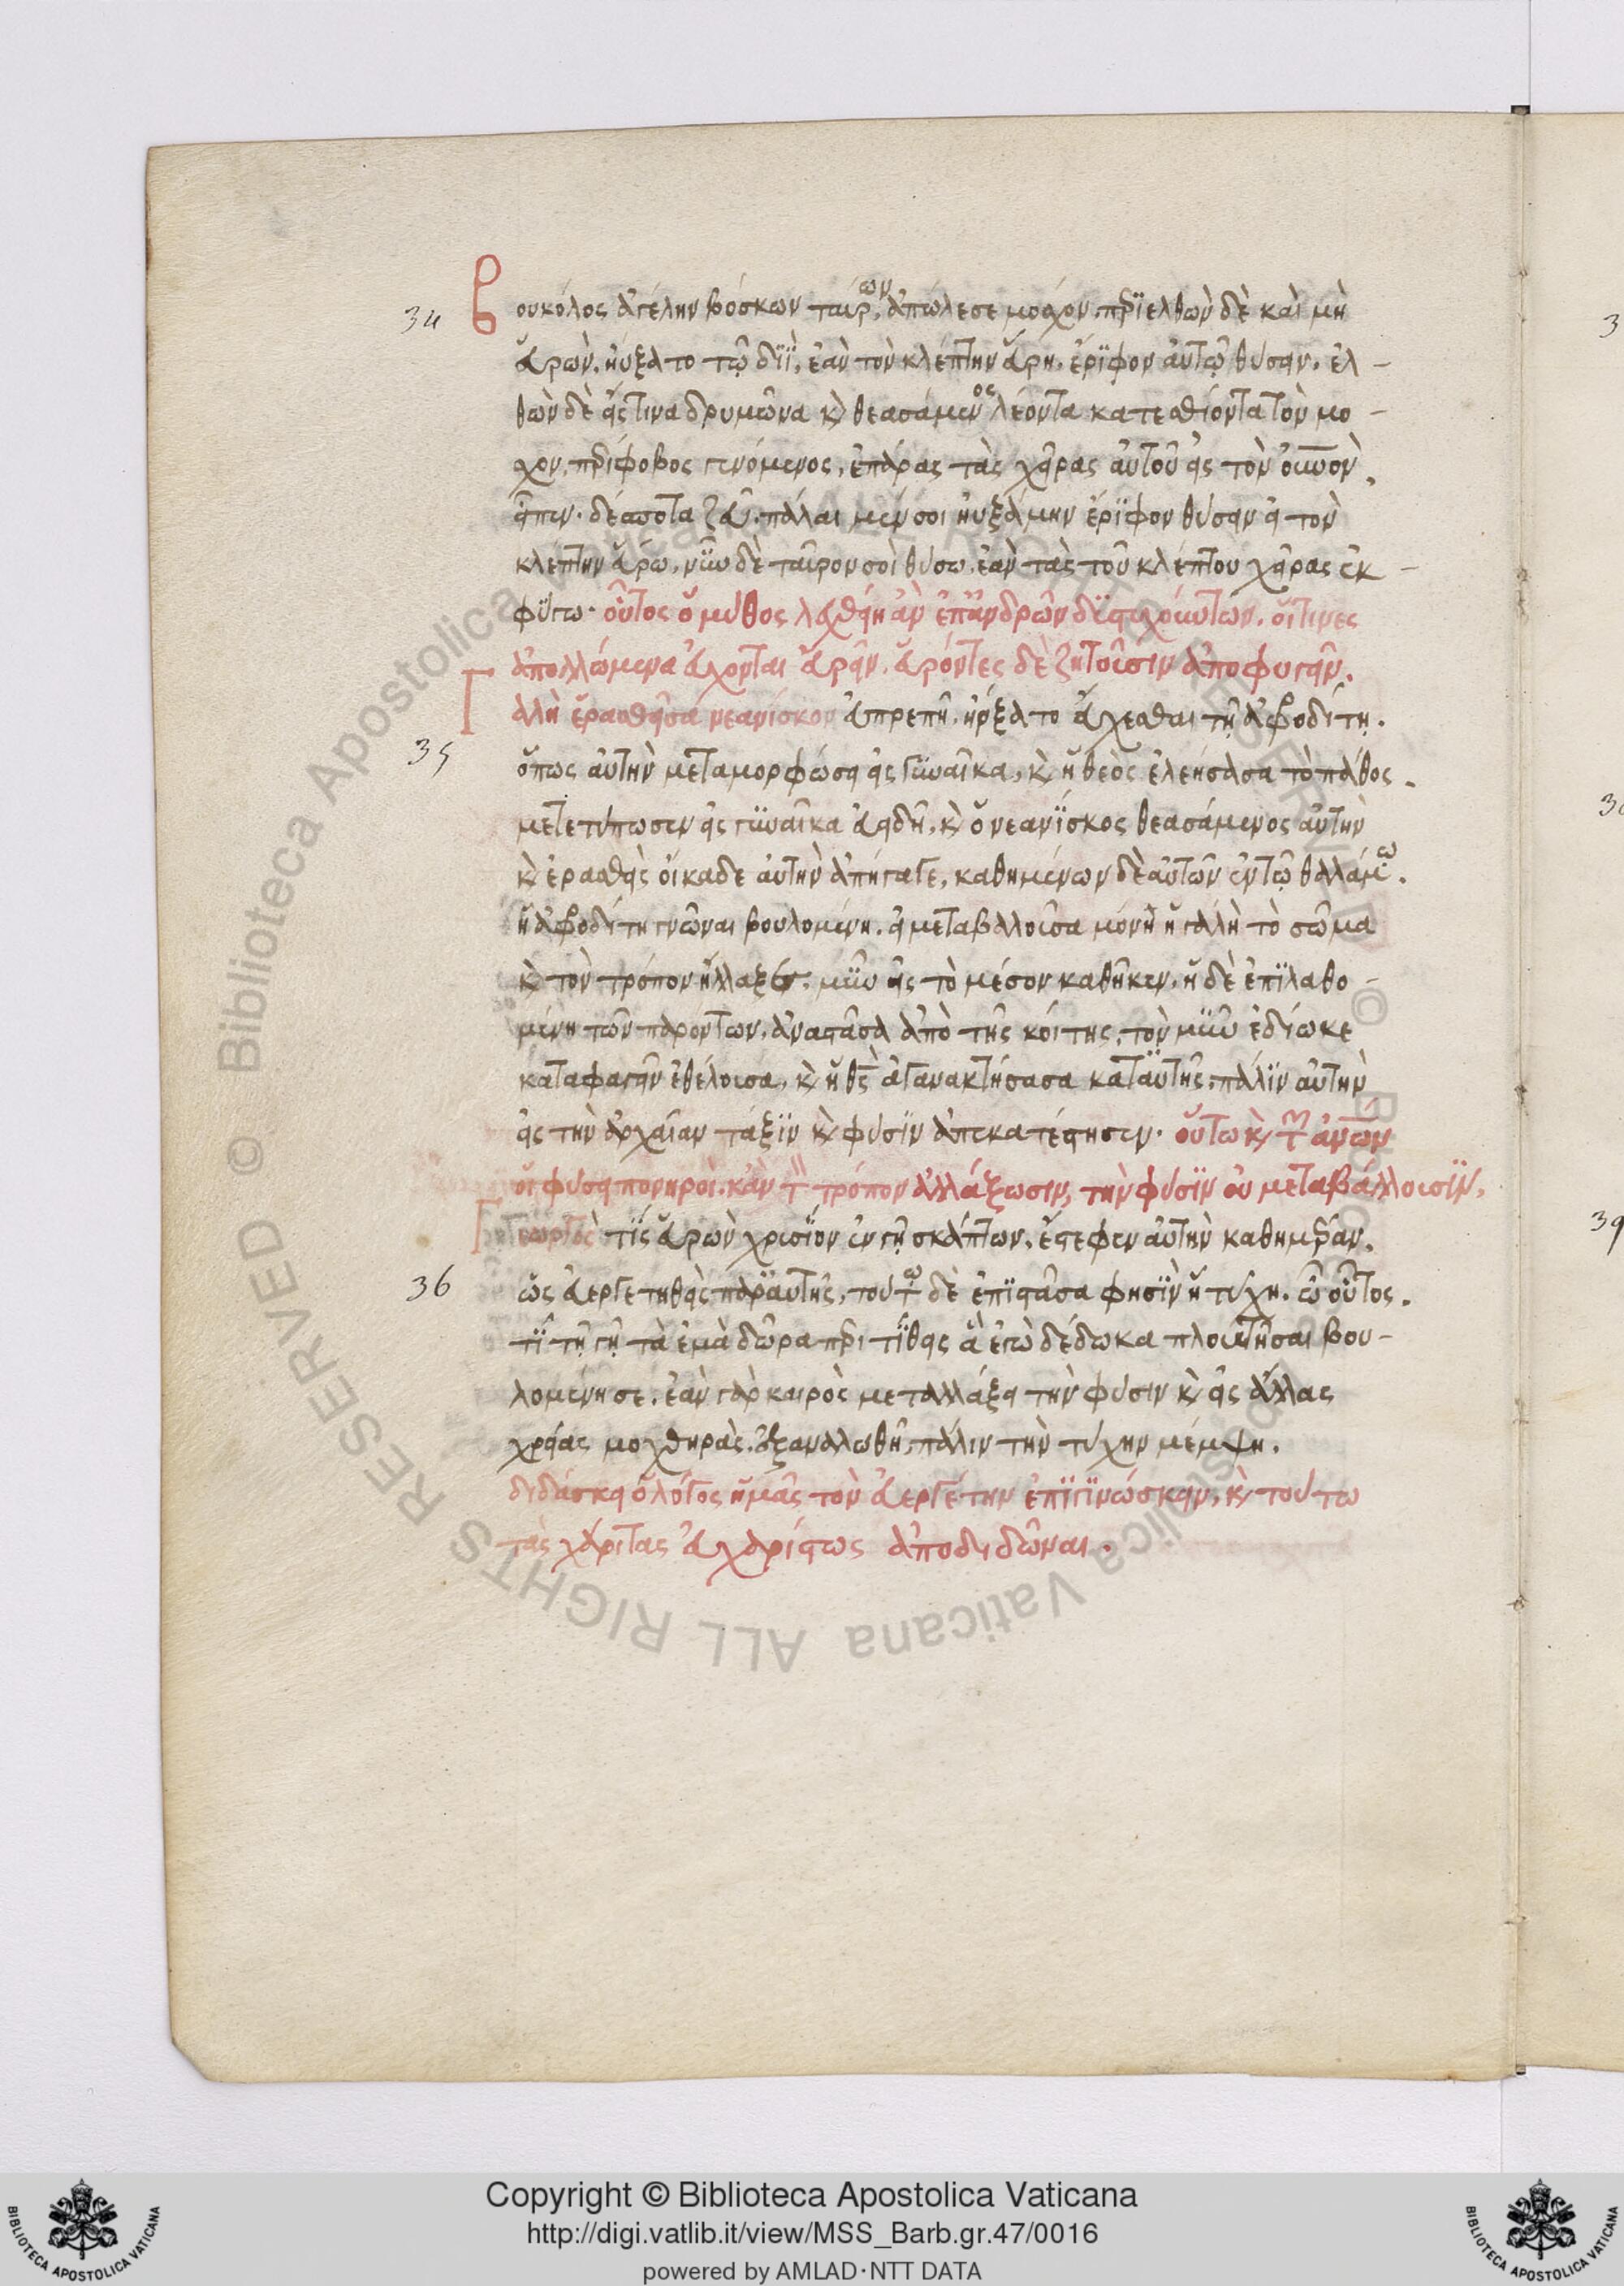 34 Βουκόλος ἀγέλην βόσκων ταύρων, ἀπώλεσε μόσχον. περιελθὼν δὲ καὶ μὴ
εὑρών, ηὔξατο τῷ διΐ, ἐὰν τὸν κλέπτην εὕρη, ἔριφον αὐτῷ θύσειν. ἐλ-
θὼν δὲ εἴς τινα δρυμῶνα κ̀ θεασάμενος λέοντα κατεσθίοντα τὸν μό-
σχον, περίφοβος γενόμενος, ἐπάρας τὰς χεῖρας αὐτοῦ εἰς τὸν οὐνον,
εἶπεν· δέσποτα ζεῦ, πάλαι μέν σοι ηὐξάμην ἔριφον θύσειν εἰ τὸν
κλέπτην εὕρω, νῦν δὲ ταῦρον σοὶ θύσω, ἐὰν τὰς τοῦ κλέπτου χεῖρας ἐκ-
φύγω· οὗτος ὁ μύθος λεχθείη ἂν ἐπ' ἀνδρῶν δυστυχούντων, οἵτινες
ἀπολλώμενα εὔχονται εὑρεῖν, εὑρόντες δὲ ζητοῦσιν ἀποφυγεῖν.
35 Γαλῆ ἐρασθεῖσα νεανίσκου εὐπρεπῆ, ηὔξατο εὔχεσθαι τῇ ἀφροδίτῃ,
ὅπως αὐτὴν μεταμορφώσῃ εἰς γυναῖκα, κ̀ ἡ θεὸς ἐλεήσασα τὸ πάθος,
μετετύπωσεν εἰς γυναῖκα εὐειδῆ, κ̀ ὁ νεανίσκος θεασάμενος αὐτὴν
κ̀ ἐρασθεὶς οἴκαδε αὐτὴν ἀπήγαγε, καθημένων δὲ αὐτῶν ἐν τῷ θαλάμῳ,
ἡ ἀφροδίτη γνῶναι βουλομένη, εἰ μεταβαλοῦσα μόνη ἡ γαλῆ τὸ σῶμα
κ̀ τὸν τρόπον ἤλλαξεν, μῦν εἰς τὸ μέσον καθῆκεν, ἡ δὲ ἐπιλαθο-
μένη τῶν παρόντων, ἀναστᾶσα ἀπὸ τῆς κοίτης, τὸν μῦν ἐδίωκε
καταφαγεῖν ἐθέλουσα, κ̀ ἡ θς̀ ἀγανακτήσασα κατ' αὐτῆς, πάλιν αὐτὴν
εἰς τὴν ἀρχαίαν τάξιν κ̀ φύσιν ἀπεκατέστησεν· οὕτω κ̀ τῶν ἀνων
οἱ φύσει πονηροί, κἂν τὸν τρόπον ἀλλάξωσιν, τὴν φύσιν οὐ μεταβάλλουσιν,
Γεωργός τις εὑρὼν χρυσίον ἐν γῇ σκάπτων, ἔστεφεν αὐτὴν καθημέραν,
36 ὡς εὐεργετηθεὶς παρ' αὐτῆς, τούτω δὲ ἐπιστᾶσα φησὶν ἡ τύχη, ὦ οὗτος,
τί τῇ γῇ τὰ ἐμὰ δῶρα προστίθεις ἃ ἐγὼ δέδωκα πλουτῆσαι βου-
λομένη σε, ἐὰν γὰρ καιρὸς μεταλλάξη τὴν φύσιν κ̀ εἰς ἄλλας
χρείας μοχθηρὰς ἐξαναλωθῆ, πάλιν τὴν τύχην μέμψη.
διδάσκει ὁ λόγος ἡμᾶς τὸν εὐεργέτην ἐπιγινώσκειν, κ̀ τούτω
τὰς χάριτας εὐχαρίστως ἀποδιδῶναι.
Copyright © Biblioteca Apostolica Vaticana
http://digi.vatlib.it/view/MSS_Barb.gr.47/0016
powered by AMLAD·NTT DATA